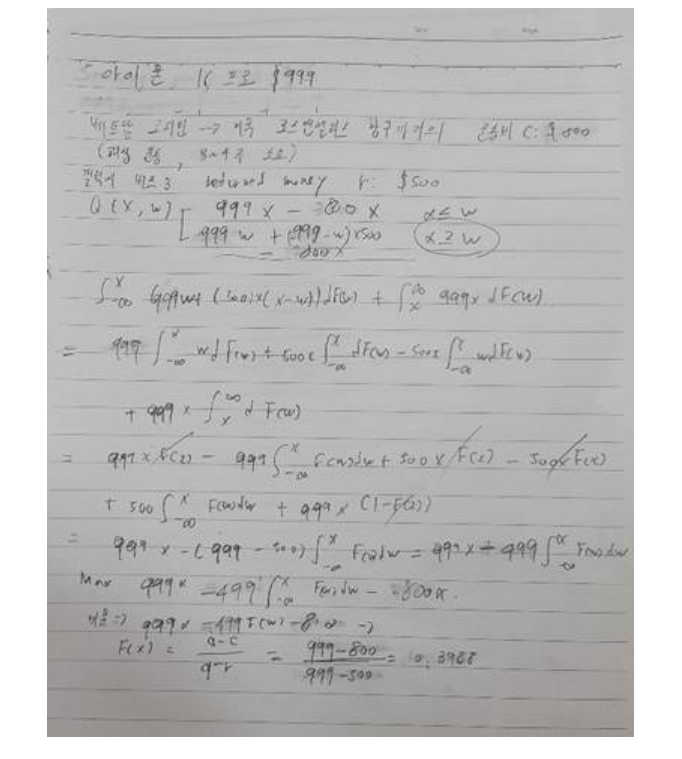 5. 아이폰 16 프로 $999
베트남 → 미국 로스앤젤레스 항구까지의 운송비 C: $800
(해상 운송, 3~4주 소요)
갤럭시 버즈 3 returned money r: $500
Q(x, w) 999x - 800x x ≤ w
999w + (999-w)x500 x ≥ w
- 800x
∫-∞^x (999w + (500)x(x-w))dF(w) + ∫x^∞ 999x dF(w)
= 999 ∫-∞^x wdF(w) + 500x ∫-∞^x dF(w) - 500x ∫-∞^x wdF(w)
+ 999x ∫x^∞ dF(w)
= 999xF(x) - 999 ∫-∞^x F(w)dw + 500xF(x) - 500xF(x)
+ 500 ∫-∞^x F(w)dw + 999x (1-F(x))
= 999x - (999-500) ∫-∞^x F(w)dw = 999x - 499 ∫-∞^x F(w)dw
Max 999x - 499 ∫-∞^x F(w)dw - 800x.
미분 => 999x - 499F(w) - 800 ->
F(x) = q-c / q-r = 999-800 / 999-500 = 0.3988